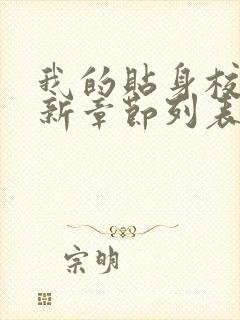 我的贴身校
新章节列表
宗明